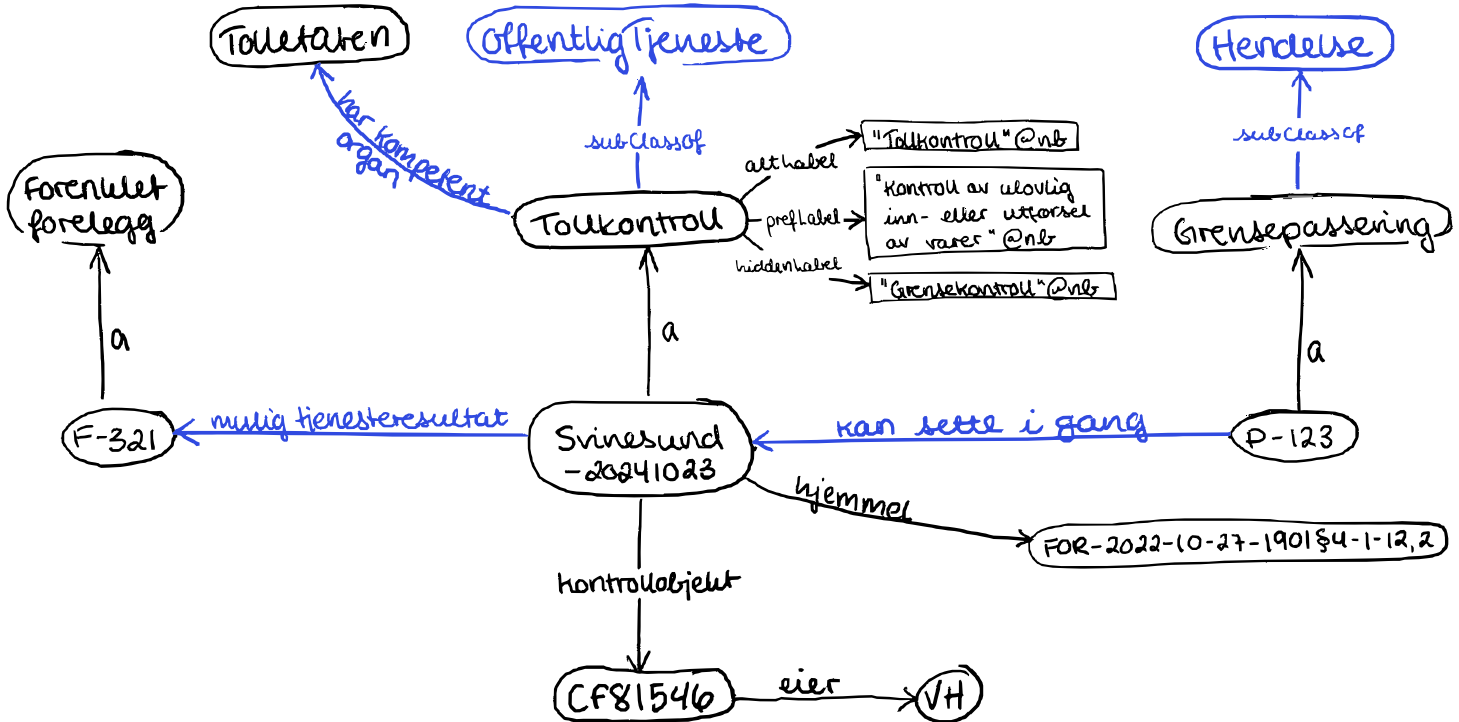 Tolletaten
OffentligTjeneste
Hendelse
har kompetent
organ
subClassOf
subClassOf
Forenklet
forelegg
Tollkontroll
altLabel
"Tollkontroll"@nb
prefLabel
"Kontroll av ulovlig
inn- eller utførsel
av varer"@nb
hiddenLabel
"Grensekontroll"@nb
Grensepassering
a
a
a
F-321
mulig tjenesteresultat
Svinesund
-20241023
kan sette i gang
P-123
hjemmel
FOR-2022-10-27-1901§4-1-12,2
kontrollobjekt
CF81546
eier
VH